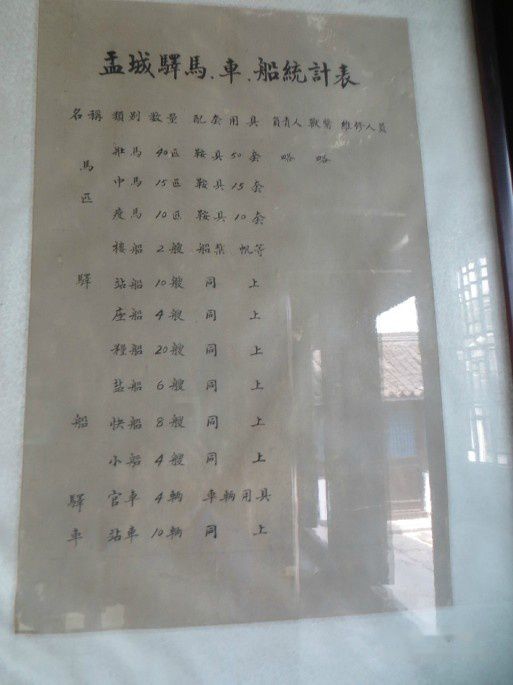 盂城驛馬、車、船統計表
名稱 類别 數量 配套用具 負責人 獸醫 維修人員
馬區 壯馬 40匹 鞍具50套 略 略
中馬 15匹 鞍具15套
疲馬 10匹 鞍具10套
驛船 樓船 2艘 船 帆等
站船 10艘 同上
座船 4艘 同上
粮船 20艘 同上
盐船 6艘 同上
快船 8艘 同上
小船 4艘 同上
驛車 官車 4輛 車輛用具
站車 10輛 同上